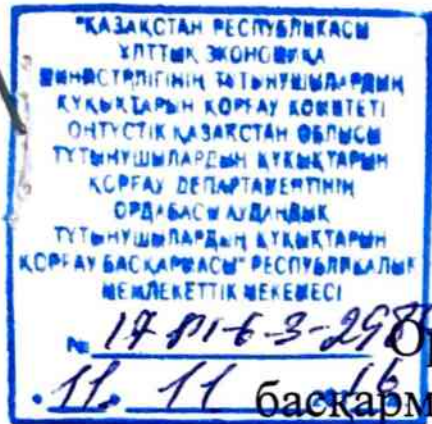 "ҚАЗАҚСТАН РЕСПУБЛИКАСЫ
ҰЛТТЫҚ ЭКОНОМИКА
МИНИСТРЛІГІНІҢ ТҰТЫНУШЫЛАРДЫҢ
ҚҰҚЫҚТАРЫН ҚОРҒАУ КОМИТЕТІ
ОҢТҮСТІК ҚАЗАҚСТАН ОБЛЫСЫ
ТҰТЫНУШЫЛАРДЫҢ ҚҰҚЫҚТАРЫН
ҚОРҒАУ ДЕПАРТАМЕНТІНІҢ
ОРДАБАСЫ АУДАНДЫҚ
ТҰТЫНУШЫЛАРДЫҢ ҚҰҚЫҚТАРЫН
ҚОРҒАУ БАСҚАРМАСЫ" РЕСПУБЛИКАЛЫҚ
МЕМЛЕКЕТТІК МЕКЕМЕСІ
№ Ор
11. 11 16
басқарм